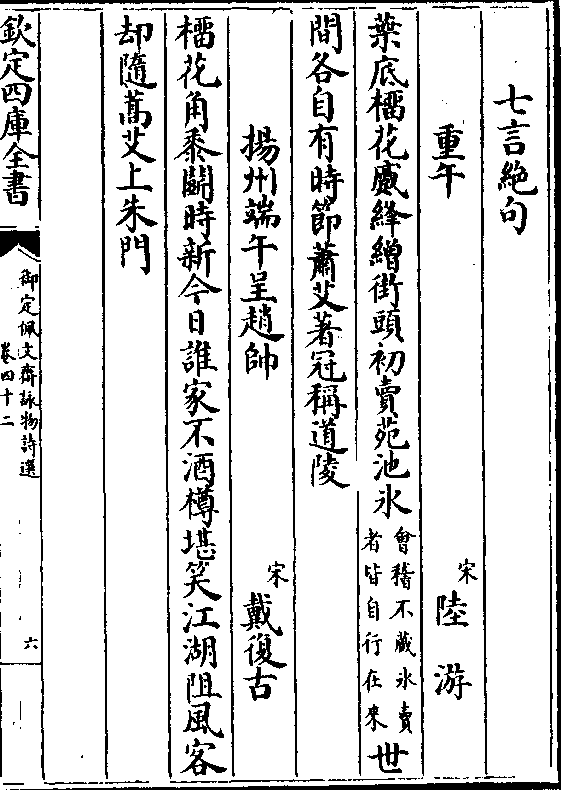 七言絶句
重午 宋 陸游
葉底榴花蹙絳繒街頭初賣苑池氷會稽不藏氷賣者皆自行在來世
間各自有時節蕭艾著冠稱道陵
揚州端午呈趙帥 宋 戴復古
榴花角黍鬭時新今日誰家不酒樽堪笑江湖阻風客
却隨蒿艾上朱門
欽定四庫全書
御定佩文齋詠物詩選
卷四十二
六